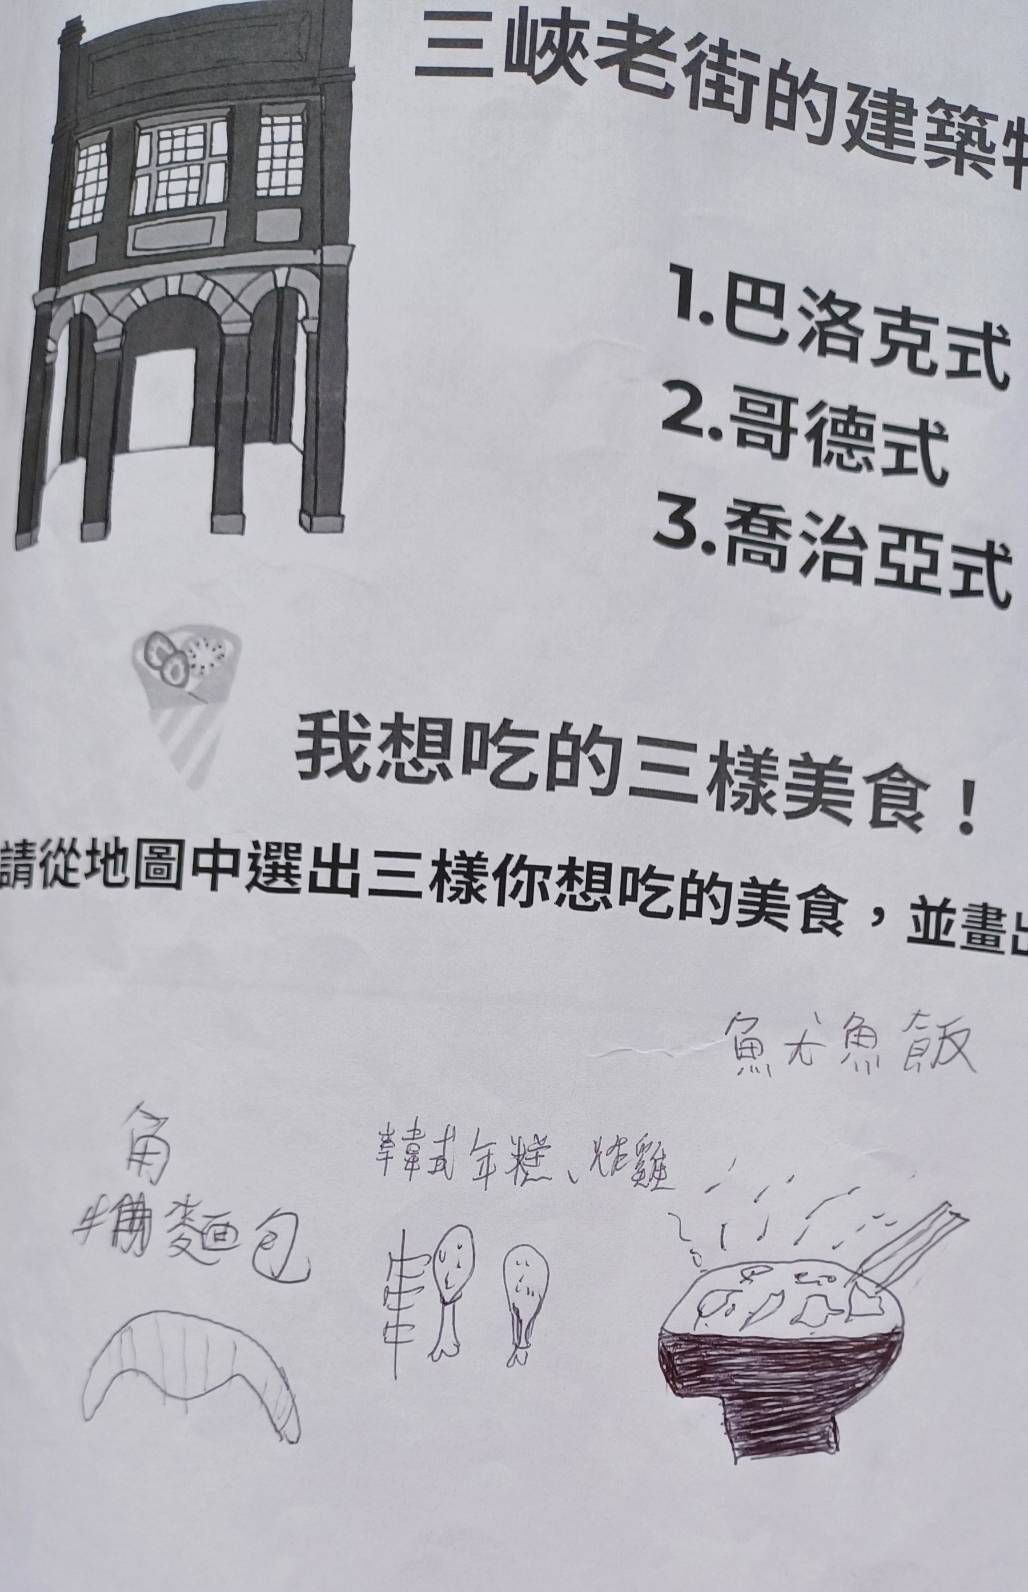 三峽老街的建築特
1.巴洛克式
2.哥德式
3.喬治亞式
我想吃的三樣美食！
請從地圖中選出三樣你想吃的美食，並畫出
魷魚飯
角
麵包
韓式年糕、炸雞